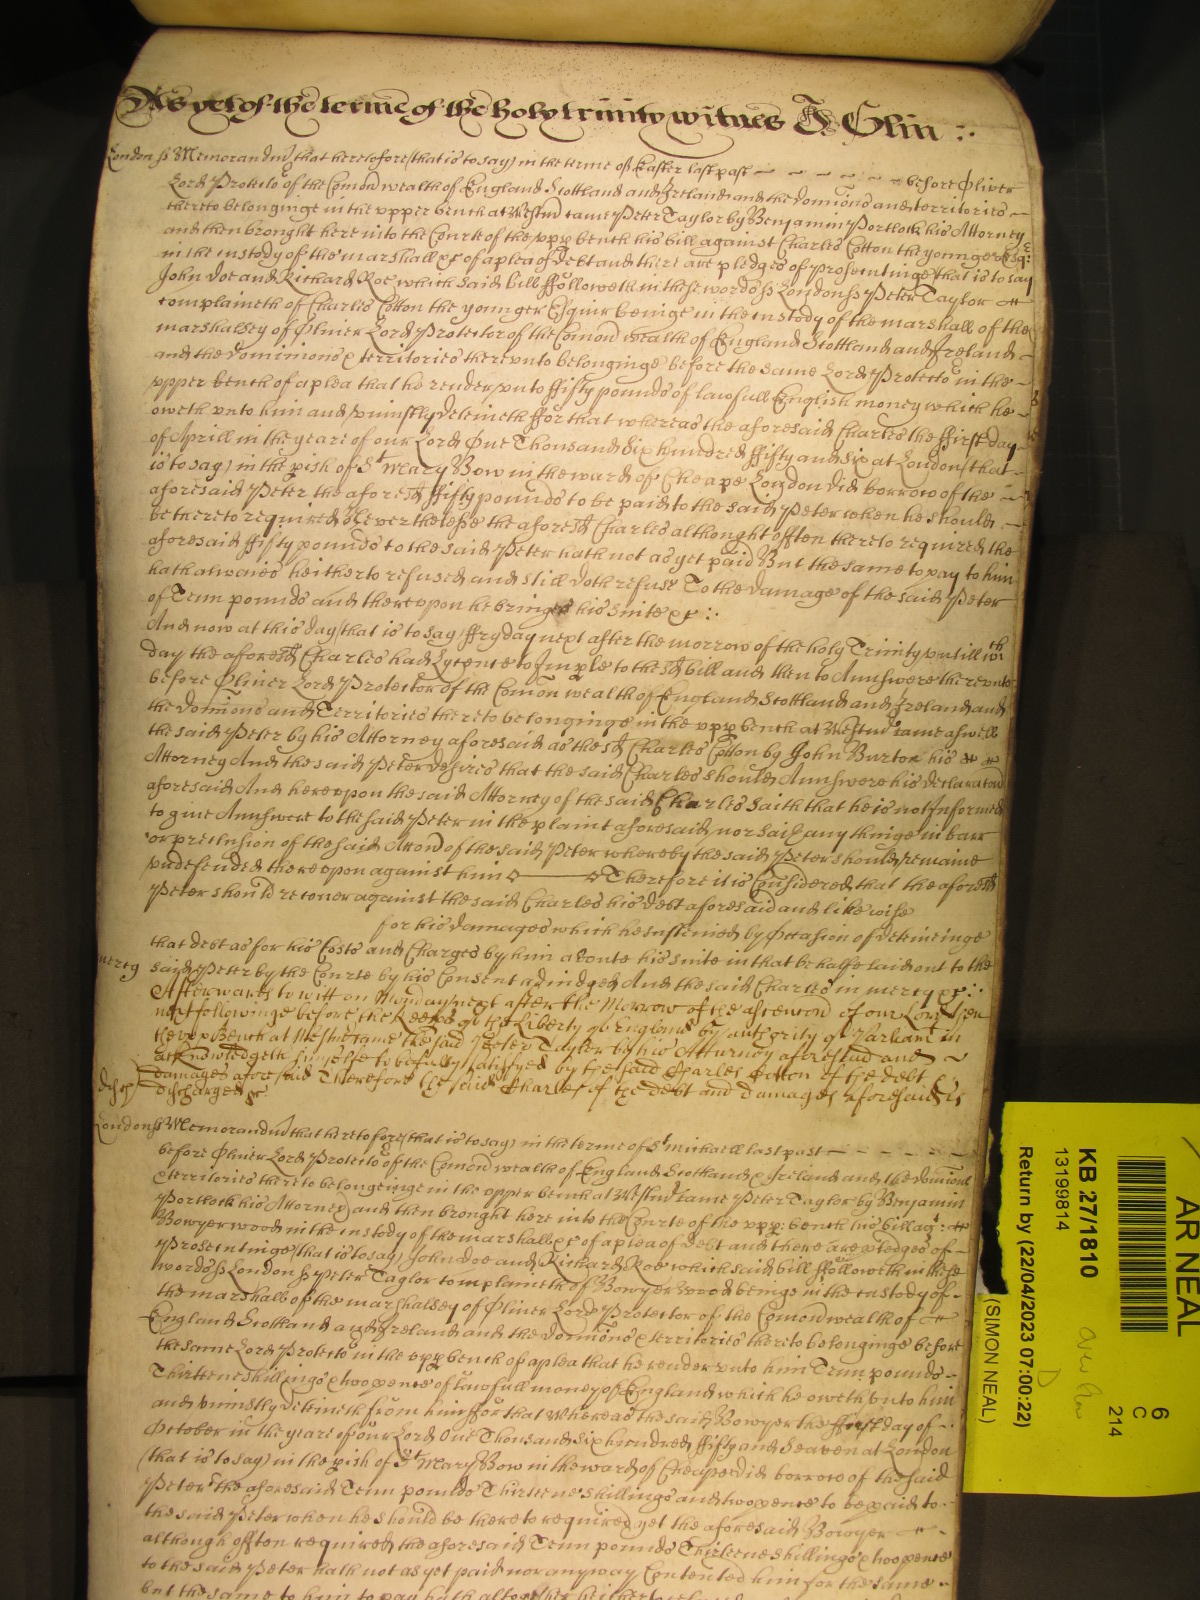 As yet of the terme of the holy trinity witnes J Glin :.
London ss Memorandũ that heretofore (that is to say) in the terme of Easter last past before Oliver
Lord Protector of the Comon wealth of England Scottland and Ireland and the dominions and territories
thereto belonginge in the upper bench at Westmr came Peter Taylor by Benjamin Portlock his Attorney
and then brought here into the Courte of the upp bench his bill against Charles Cotton the younger Esqr
in the custody of the marshall &c of a plea of Debt and there are pledges of prosecutinge (that is to say
John Doe and Richard Roe which said bill ffolloweth in these words ss London ss Peter Taylor
complaineth of Charles Cotton the younger Esquir beinge in the custody of the marshall of the
marshalsey of Oliver Lord Protector of the Comon wealth of England Scottland and Ireland
and the dominions & territories thereunto belonginge before the same Lord Protector in the
upper bench of a plea that he render unto ffifty pounds of lawfull English money which he
oweth unto him and uniustly deteineth ffor that whereas the aforesaid Charles the ffirst day
of Aprill in the yeare of our Lord One Thousand Six hundred ffifty and Six at London (that
is to say) in the pish of St Mary Bow in the ward of Cheape London did borrow of the
aforesaid Peter the aforesd ffifty pounds to be paid to the said Peter when he should
be thereto required Neverthelesse the aforesd Charles althought often thereto required the
aforesaid ffifty pounds to the said Peter hath not as yet paid But the same to pay to him
hath alwaies heitherto refused and still doth refuse To the damage of the said Peter
of Tenn pounds and thereupon he bringes his suite &c :.
And now at this day (that is to say) ffryday next after the morrow of the holy Trinity untill wch
day the aforesd Charles had Lycence to Imple to the sd bill and then to Annswere thereunto
before Oliver Lord Protector of the Comon wealth of England Scottland and Ireland and
the dominions and Territories thereto belonginge in the upp bench at Westmr came aswell
the said Peter by his Attorney aforesaid as the sd Charles Cotton by John Burton his
Attorney And the said Peter desires that the said Charles should Annswere his declaracon
aforesaid And hereupon the said Attorney of the said Charles saith that he is not Informed
to give Annswere to the said Peter in the plaint aforesaid nor saith any thinge in barr
or preclusion of the said Accon of the said Peter whereby the said Peter should remaine
undefended thereupon against him Therefore it is Considered that the aforesd
Peter should recover against the said Charles his debt aforesaid and likewise
for his damages which he susteined by Occasion of deteineinge
that debt as for his Costs and Charges by him aboute his suite in that behalfe laid out to the
mercy said Peter by the Courte by his Consent adiudged And the said Charles in mercy &c :.
Afterwards to witt on Monday next after the Morrow of the Ascencon of our Lord then
next followinge before the Keepers of the Liberty of England by authority of Parliamt in
the upp Bench at Westm came the said Peter Taylor by his Atturney aforesaid and
acknowledgeth himselfe to be fully satisfyed by the said Charles Cotton of the debt &
damages aforesaid Therefore the said Charles of the debt and damages aforesaid is
disch discharged &c
London ss Memorandũ that heretofore (that is to say) in the terme of St Michaell last past
before Oliver Lord Protector of the Comon wealth of England Scottland & Ireland and the dominions
& territories thereto belongeinge in the upper bench at Westmr came Peter Taylor by Benjamin
Portlock his Attorney and then brought here into the Courte of the upp: bench his bill agt:
Bowyer wood in the custody of the marshall &c of a plea of debt and there are pledges of
prosecutinge (that is to say) John Doe and Richard Roe which said bill ffolloweth in these
words ss London ss Peter Taylor complaineth of Bowyer Wood beinge in the custody of
the marshall of the marshalsey of Oliver Lord Protector of the Comon wealth of
England Scottland and Ireland and the dominions & territories thereto belonginge before
the same Lord Protector in the upp bench of a plea that he render unto him Tenn pounds
Thirteene shillings & twoo pence of lawfull money of England which he oweth unto him
and uniustly deteineth from him ffor that Whereas the said Bowyer the ffirst day of
October in the yeare of our Lord One Thousand Six hundred ffifty and Seaven at London
(that is to say) in the pish of St Mary Bow in the ward of Cheape did borrow of the said
Peter the aforesaid Tenn pounds Thirteene shillings and twoo pence to be paid to
the said Peter when he should be thereto required yet the aforesaid Bowyer
although often required the aforesaid Tenn pounds Thirteene shillings & twoo pence
to the said Peter hath not as yet paid nor any way Contented him for the same
but the same to him to pay hath altogether heitherto refused
AR NEAL
KB 27/1810
13199814
Return by (22/04/2023 07:00:22)
(SIMON NEAL)
6
C
214
D